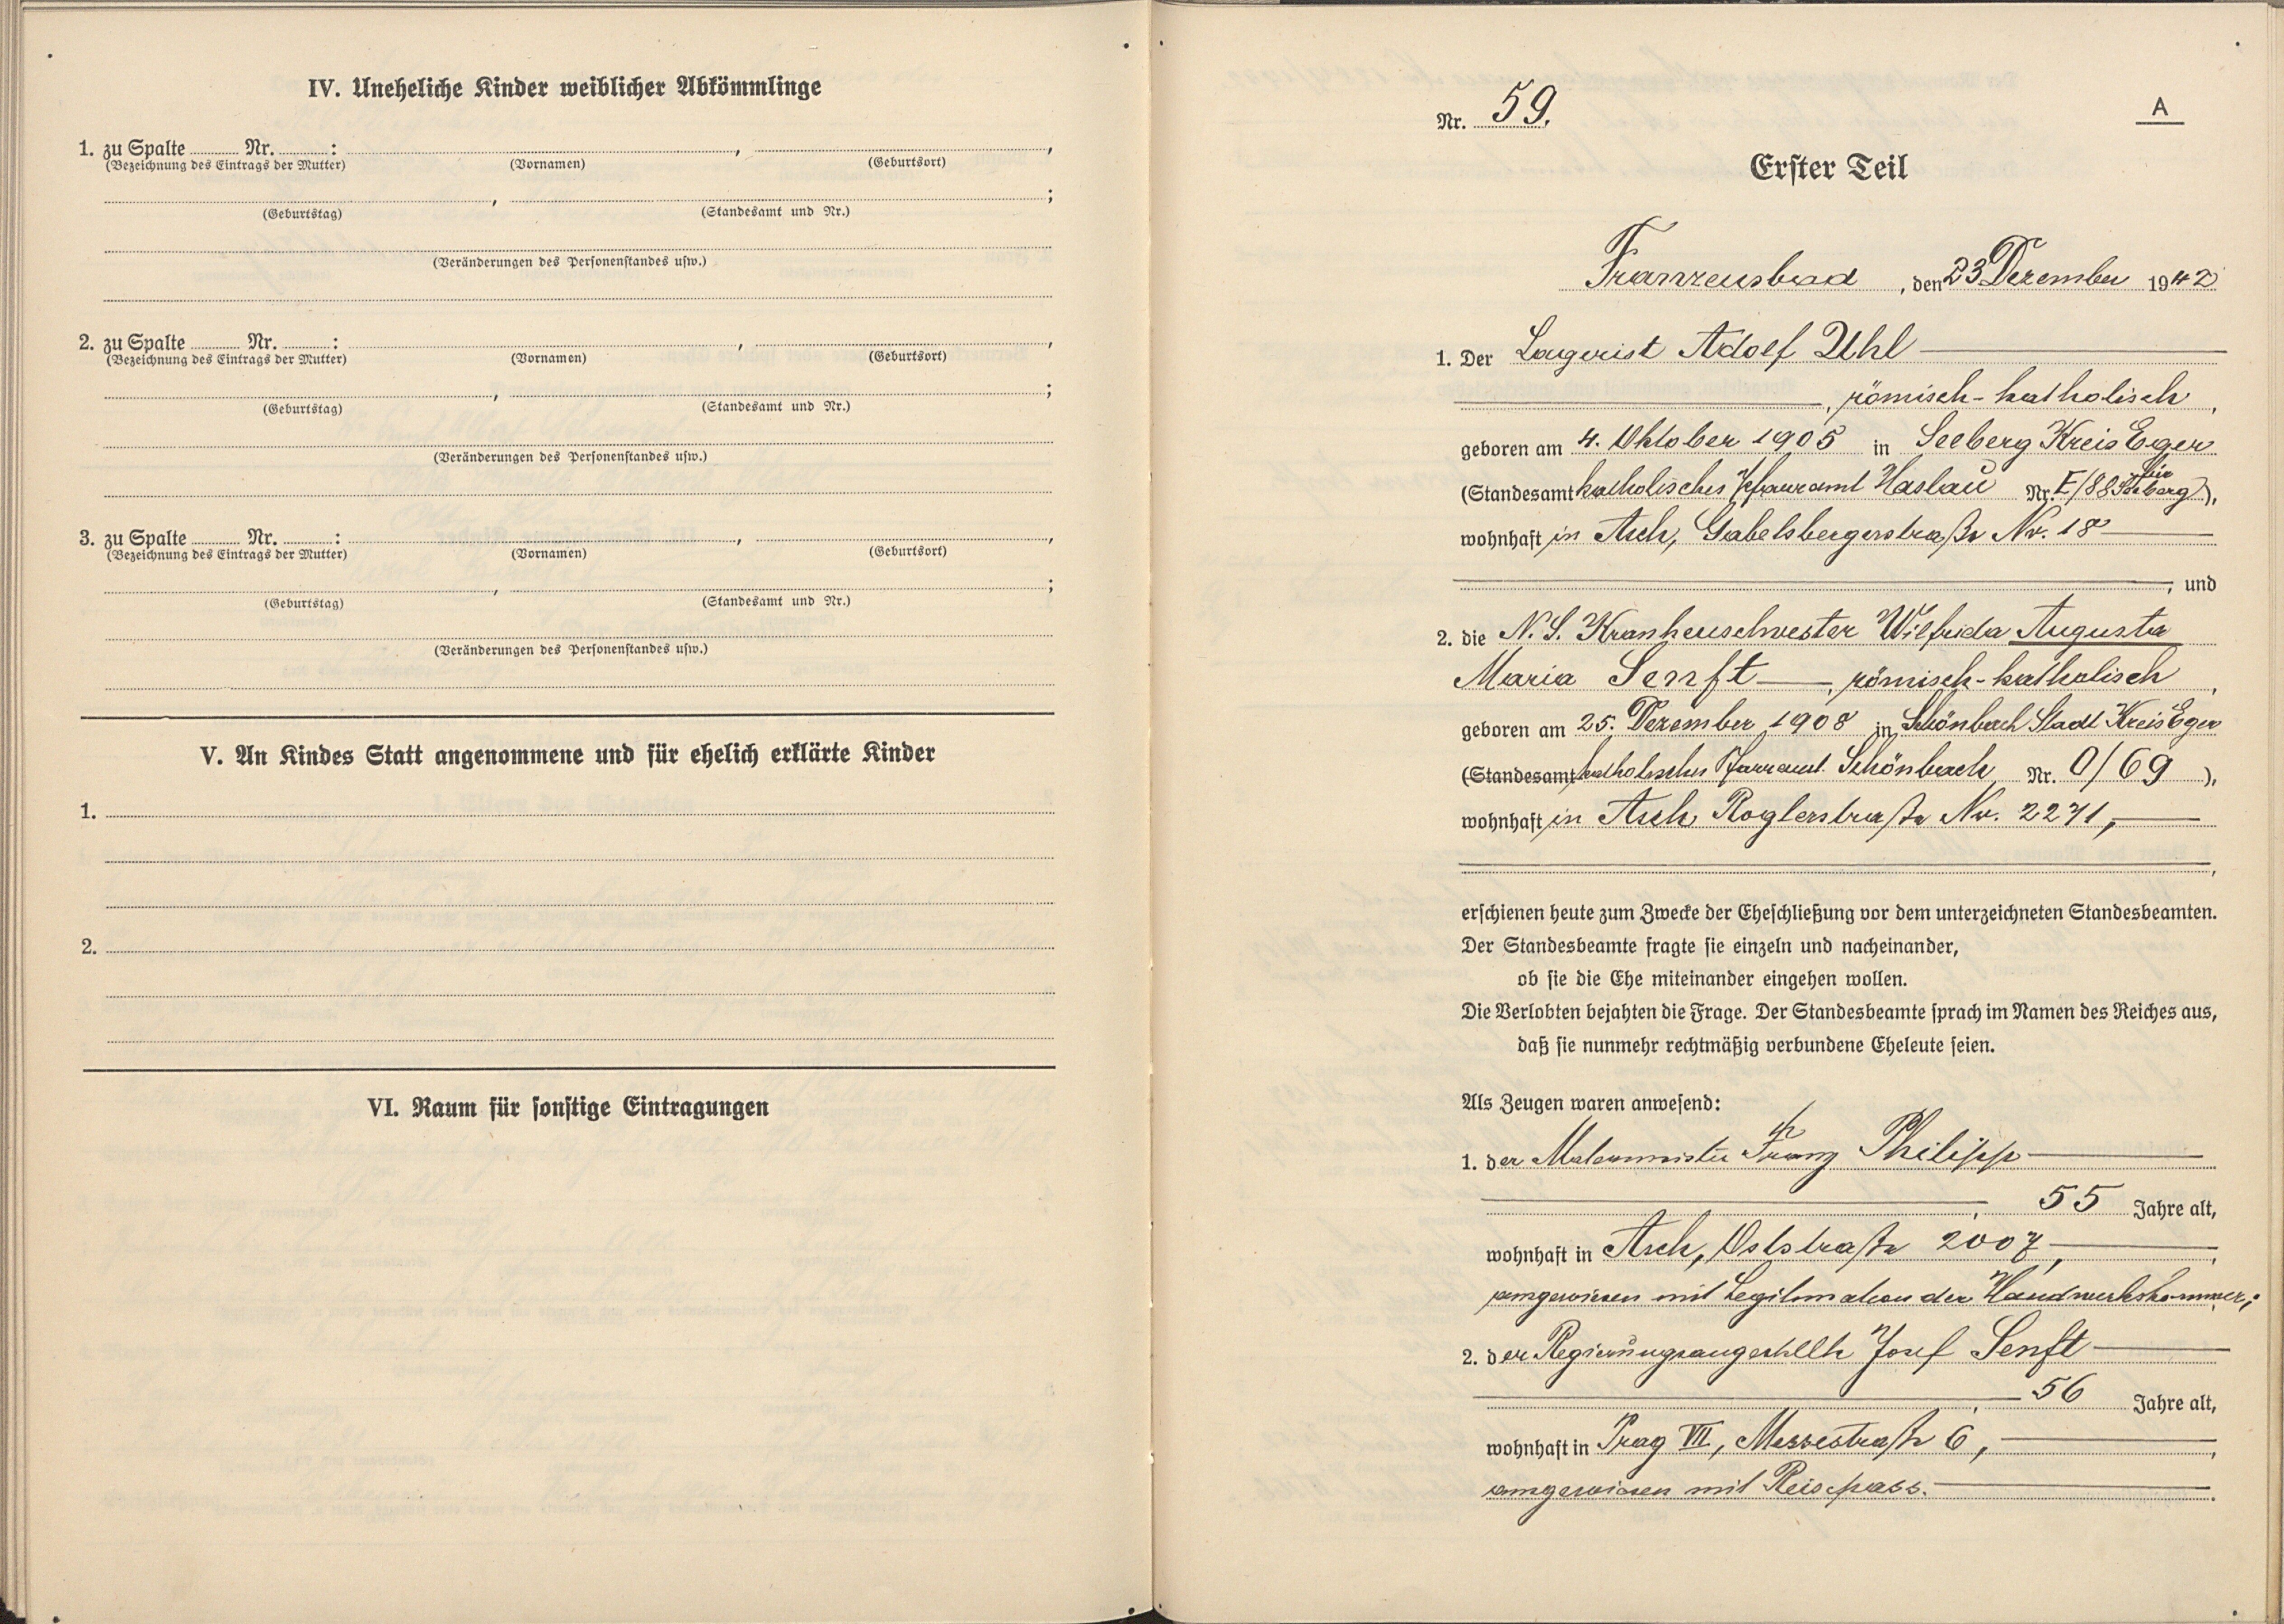 IV. Uneheliche Kinder weiblicher Abkömmlinge
1. zu Spalte ........ Nr. ........ : ........ , ........ ,
(Bezeichnung des Eintrags der Mutter) (Vornamen) (Geburtsort)
........ , ........ ;
(Geburtstag) (Standesamt und Nr.)
(Veränderungen des Personenstandes usw.)
2. zu Spalte ........ Nr. ........ : ........ , ........ ,
(Bezeichnung des Eintrags der Mutter) (Vornamen) (Geburtsort)
........ , ........ ;
(Geburtstag) (Standesamt und Nr.)
(Veränderungen des Personenstandes usw.)
3. zu Spalte ........ Nr. ........ : ........ , ........ ,
(Bezeichnung des Eintrags der Mutter) (Vornamen) (Geburtsort)
........ , ........ ;
(Geburtstag) (Standesamt und Nr.)
(Veränderungen des Personenstandes usw.)
V. An Kindes Statt angenommene und für ehelich erklärte Kinder
1.
2.
VI. Raum für sonstige Eintragungen
Nr. 59.
A
Erster Teil
Franzensbad, den 23 Dezember 1942
1. Der Lagerist Adolf Uhl
, römisch-katholisch,
geboren am 4. Oktober 1905 in Seeberg Kreis Eger
(Standesamt katholisches Pfarramt Haslau Nr. E/88 für Seeberg),
wohnhaft in Asch, Gabelsbergerstraße Nr. 18
, und
2. die N.S. Krankenschwester Wilfrida Augusta
Maria Senft, römisch-katholisch,
geboren am 25. Dezember 1908 in Schönbach Stadt Kreis Eger
(Standesamt katholisches Pfarramt Schönbach Nr. O/69),
wohnhaft in Asch Roglerstraße Nr. 2271,
,
erschienen heute zum Zwecke der Eheschließung vor dem unterzeichneten Standesbeamten.
Der Standesbeamte fragte sie einzeln und nacheinander,
ob sie die Ehe miteinander eingehen wollen.
Die Verlobten bejahten die Frage. Der Standesbeamte sprach im Namen des Reiches aus,
daß sie nunmehr rechtmäßig verbundene Eheleute seien.
Als Zeugen waren anwesend:
1. der Malermeister Franz Philipp
, 55 Jahre alt,
wohnhaft in Asch, Oststraße 2007,
ausgewiesen mit Legitimation der Handwerkskammer;
2. der Regierungsangestellte Josef Senft
, 56 Jahre alt,
wohnhaft in Prag VII, Messestraße 6,
ausgewiesen mit Reisepass.